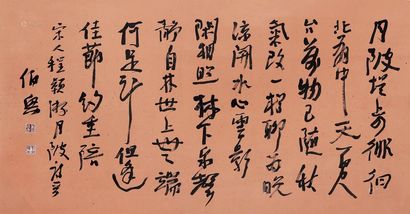 月陂堤上四徘徊
北有中天百尺
台萬物已隨秋
氣改一樽聊為晚
涼開水心雲影
閑相照林下泉聲
靜自來世上無端
何足計但逢
佳節約重陪
宋人程顥游月陂詩
伯